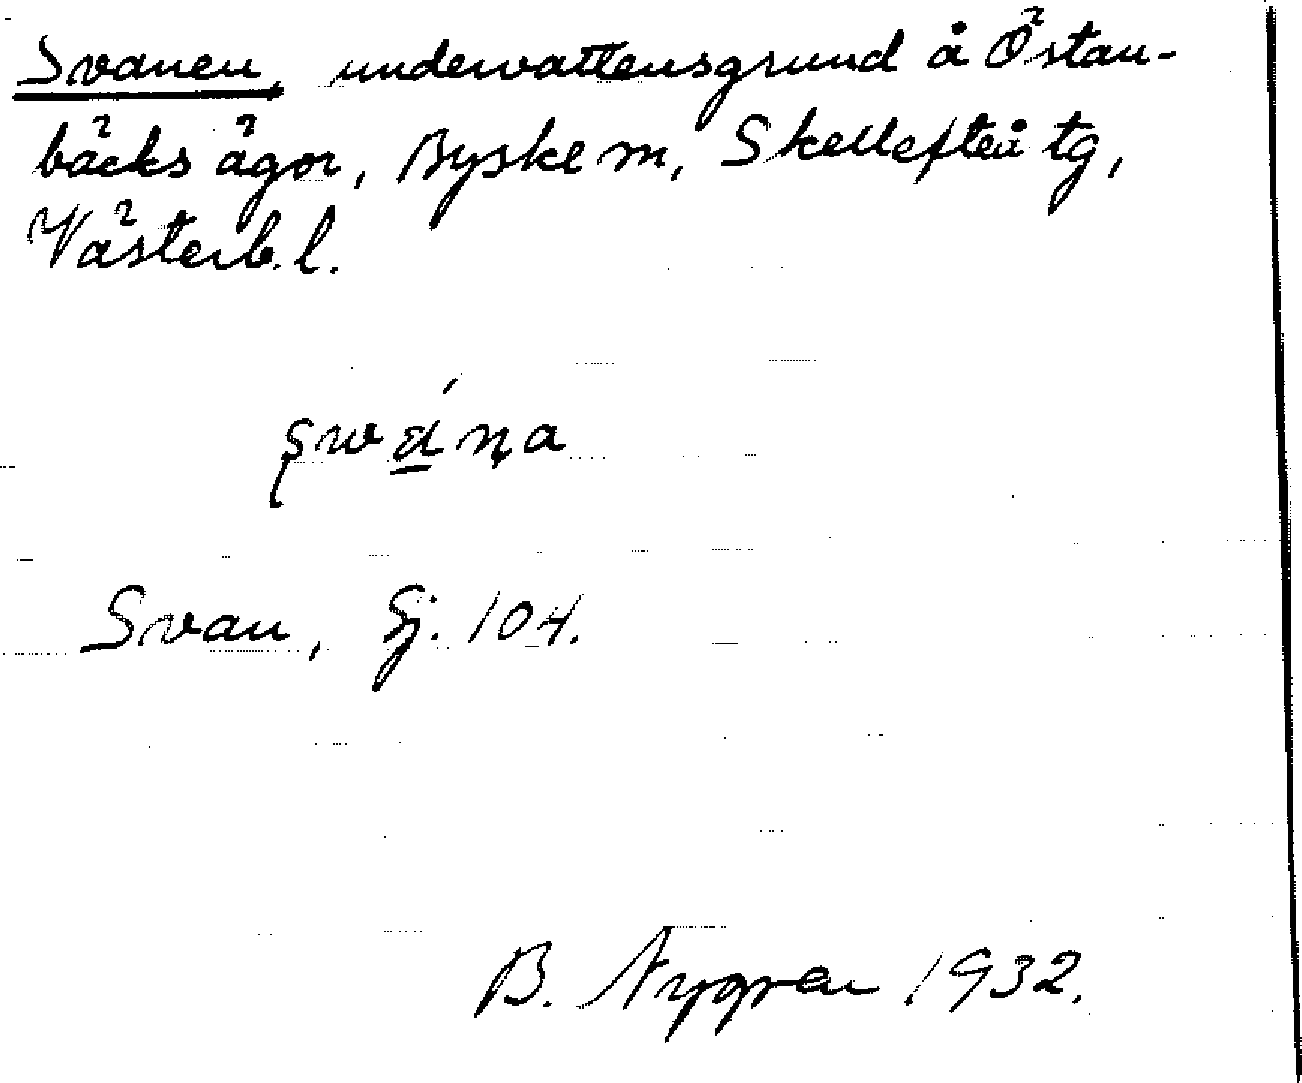 Svanen, undervattensgrund å Östan-
bäcks ägor, Byske sn, Skellefteå tg,
Västerb. l.
Svan, Gj. 104.
B. Nygren 1932.